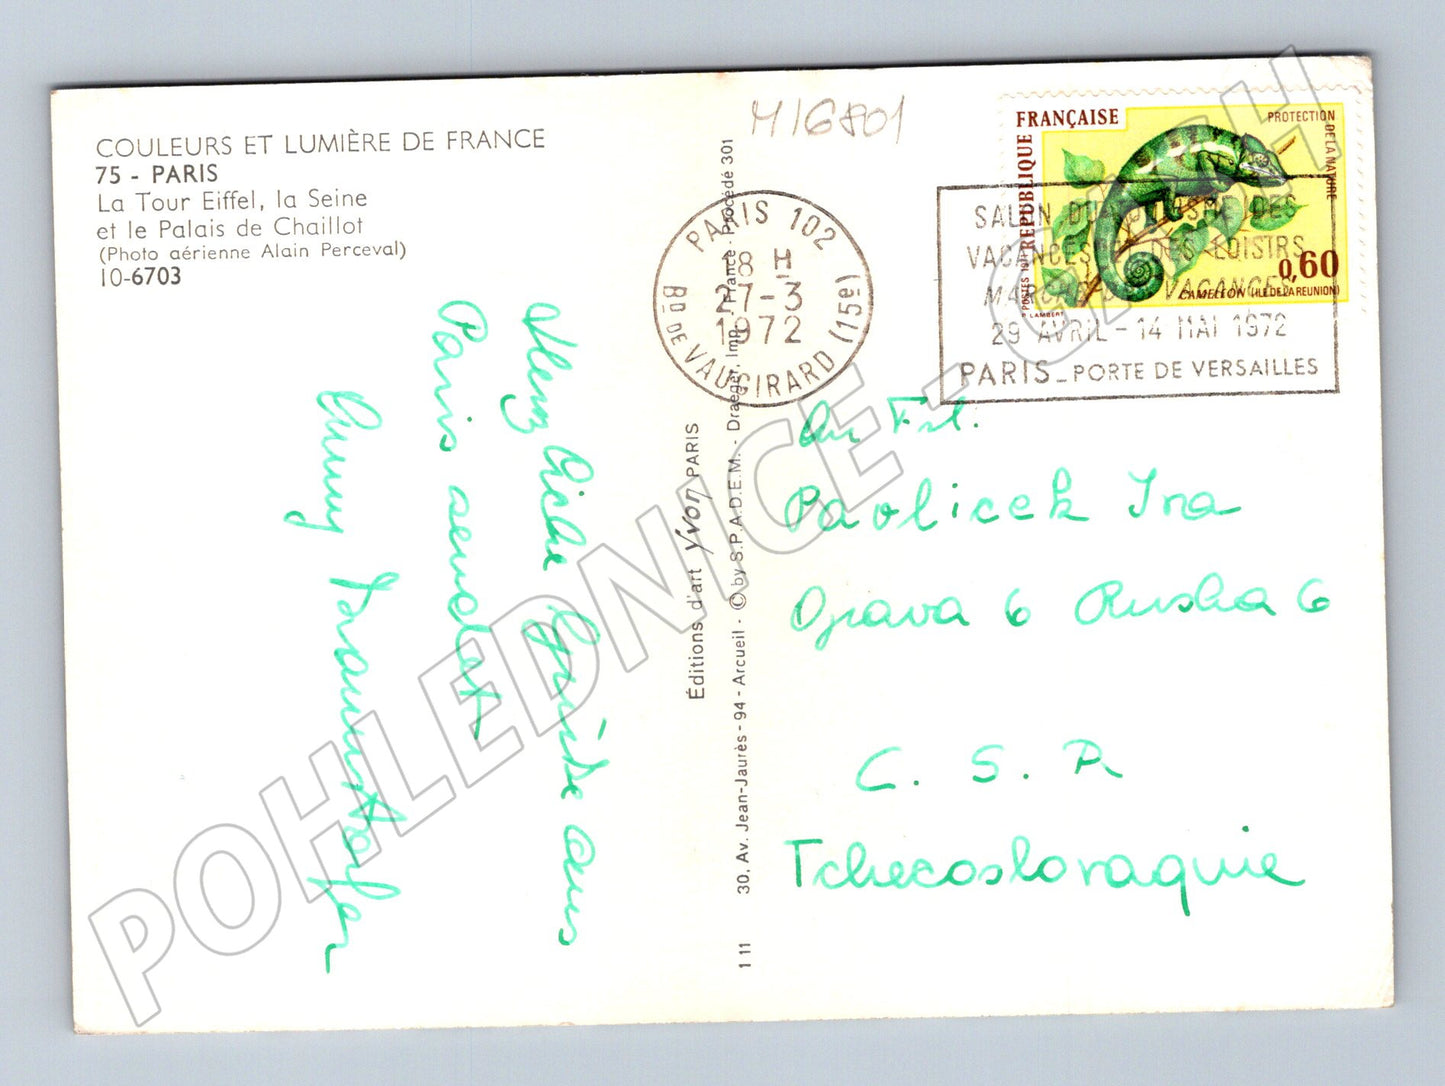 COULEURS ET LUMIÈRE DE FRANCE
75 - PARIS
La Tour Eiffel, la Seine
et le Palais de Chaillot
(Photo aérienne Alain Perceval)
10-6703
Herzliche Grüße aus
Paris sendet
Éditions d'art Yvon PARIS
30, Av. Jean-Jaurès - 94 - Arcueil - © by S.P.A.D.E.M. - Draeger, Imp. France - Procédé 301
1 11
M16801
PARIS 102
18 H
27-3
1972
BD DE VAUGIRARD (15e)
RÉPUBLIQUE FRANÇAISE
PROTECTION DE LA NATURE
POSTES 1971
0,60
CAMÉLÉON (ILE DE LA RÉUNION)
P. LAMBERT
SALON DU TOURISME DES
VACANCES ET DES LOISIRS
MARCHÉ DES VACANCES
29 AVRIL - 14 MAI 1972
PARIS - PORTE DE VERSAILLES
An Frl.
Pavlicek Ina
Opava 6 Ruska 6
C. S. R
Tchecoslovaquie
POHLEDNICE - CASH